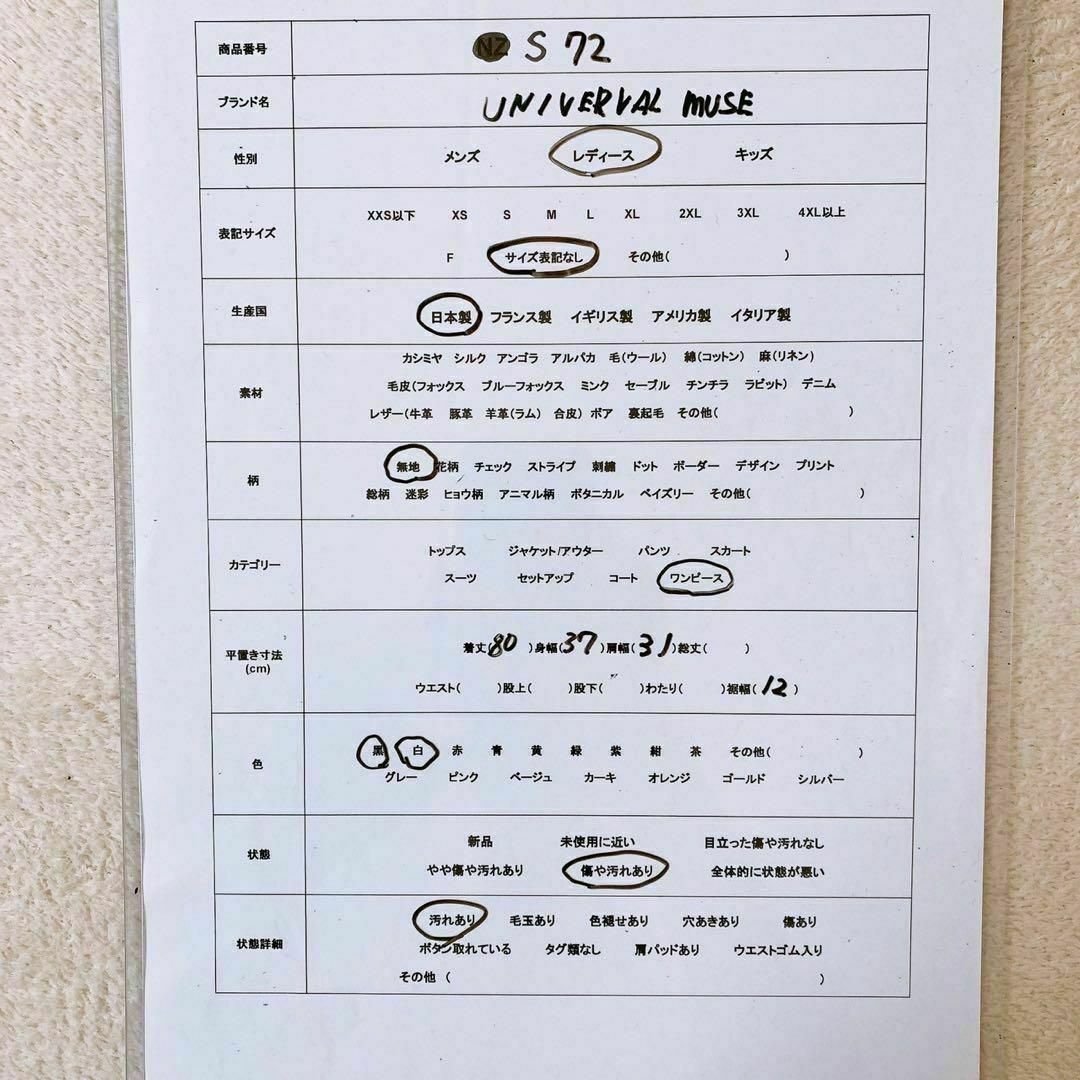 商品番号 NZ S 72
ブランド名 UNIVERVAL MUSE
性別 メンズ レディース キッズ
表記サイズ
XXS以下 XS S M L XL 2XL 3XL 4XL以上
F サイズ表記なし その他( )
生産国 日本製 フランス製 イギリス製 アメリカ製 イタリア製
素材
カシミヤ シルク アンゴラ アルパカ 毛(ウール) 綿(コットン) 麻(リネン)
毛皮(フォックス ブルーフォックス ミンク セーブル チンチラ ラビット) デニム
レザー(牛革 豚革 羊革(ラム) 合皮) ボア 裏起毛 その他( )
柄
無地 花柄 チェック ストライプ 刺繍 ドット ボーダー デザイン プリント
総柄 迷彩 ヒョウ柄 アニマル柄 ボタニカル ペイズリー その他( )
カテゴリー
トップス ジャケット/アウター パンツ スカート
スーツ セットアップ コート ワンピース
平置き寸法
(cm)
着丈(80 )身幅(37 )肩幅(31)総丈( )
ウエスト( )股上( )股下( )わたり( )裾幅(12 )
色
黒 白 赤 青 黄 緑 紫 紺 茶 その他( )
グレー ピンク ベージュ カーキ オレンジ ゴールド シルバー
状態
新品 未使用に近い 目立った傷や汚れなし
やや傷や汚れあり 傷や汚れあり 全体的に状態が悪い
状態詳細
汚れあり 毛玉あり 色褪せあり 穴あきあり 傷あり
ボタン取れている タグ類なし 肩パッドあり ウエストゴム入り
その他 ( )